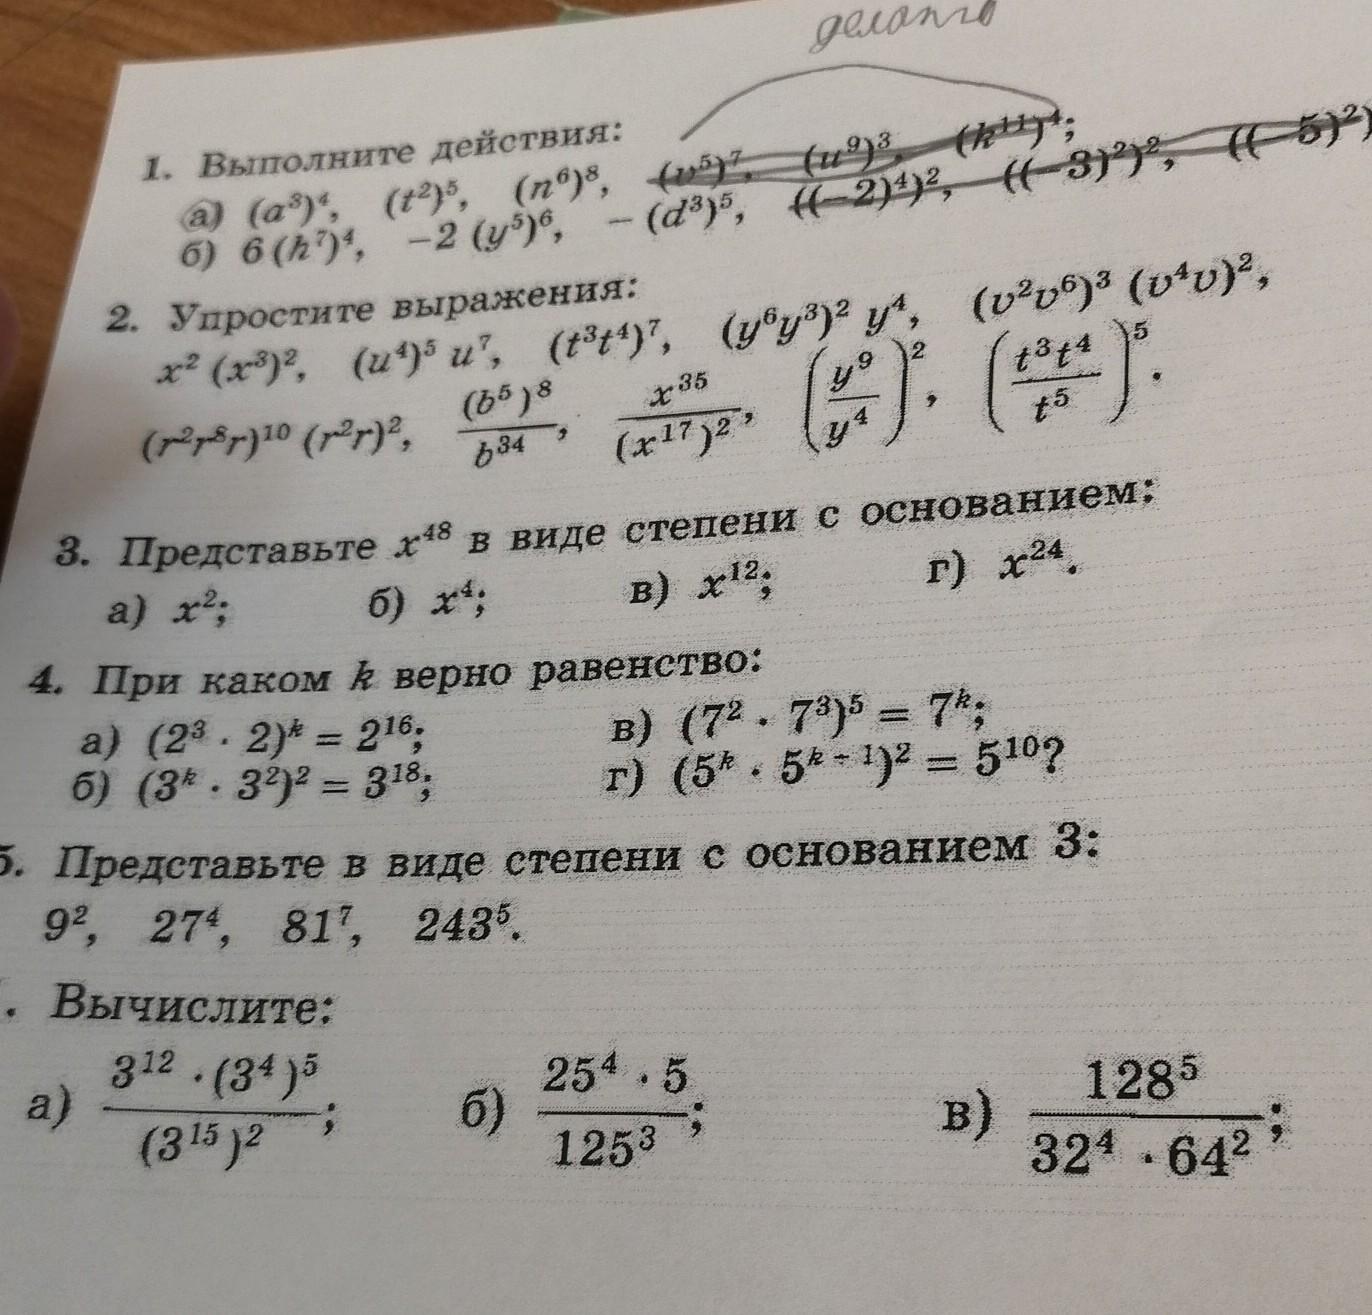 делать
1. Выполните действия:
а) (a³)⁴, (t²)⁵, (n⁶)⁸, (v⁵)⁷, (u⁹)³, (k¹¹)⁴;
б) 6 (h⁷)⁴, −2 (y⁵)⁶, − (d³)⁵, ((−2)⁴)², ((−3)²)², ((−5)²)
2. Упростите выражения:
x² (x³)², (u⁴)⁵ u⁷, (t³t⁴)⁷, (y⁶y³)² y⁴, (v²v⁶)³ (v⁴v)²,
(r²r⁸r)¹⁰ (r²r)², (b⁵)⁸/b³⁴, x³⁵/(x¹⁷)², (y⁹/y⁴)², (t³t⁴/t⁵)⁵.
3. Представьте x⁴⁸ в виде степени с основанием:
а) x²; б) x⁴; в) x¹²; г) x²⁴.
4. При каком k верно равенство:
а) (2³ · 2)ᵏ = 2¹⁶; в) (7² · 7³)⁵ = 7ᵏ;
б) (3ᵏ · 3²)² = 3¹⁸; г) (5ᵏ · 5ᵏ⁺¹)² = 5¹⁰?
5. Представьте в виде степени с основанием 3:
9², 27⁴, 81⁷, 243⁵.
. Вычислите:
а) 3¹² · (3⁴)⁵/(3¹⁵)²; б) 25⁴ · 5/125³; в) 128⁵/32⁴ · 64²;